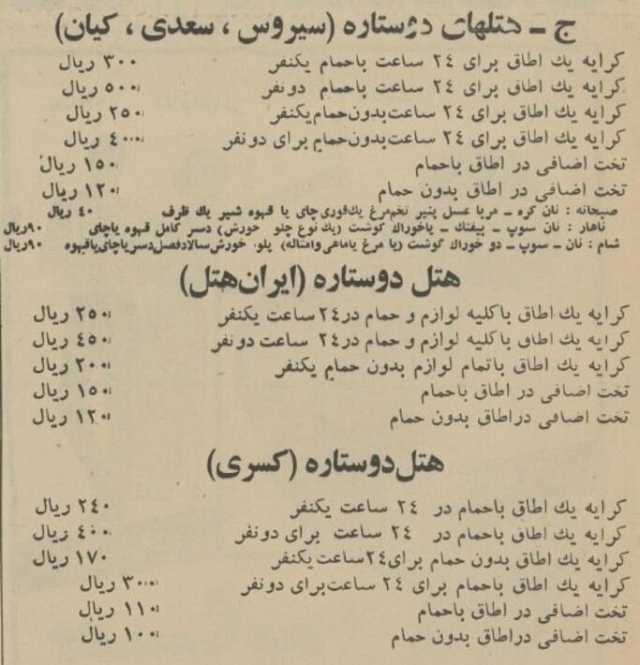 ج ــ هتلهای دوستاره (سیروس ، سعدی ، کیان)
کرایه یك اطاق برای ۲٤ ساعت باحمام یکنفر ۳۰۰ ریال
کرایه یك اطاق برای ۲٤ ساعت باحمام دونفر ۵۰۰ ریال
کرایه یك اطاق برای ۲٤ ساعت‌بدون‌حمام‌یکنفر ۲۵۰ ریال
کرایه یك اطاق برای ۲٤ ساعت‌بدون‌حمام برای دونفر ٤۰۰ ریال
تخت اضافی در اطاق باحمام ۱۵۰ ریال
تخت اضافی در اطاق بدون حمام ۱۲۰ ریال
صبحانه : نان کره ــ مربا عسل پنیر تخم‌مرغ یك‌قوری چای یا قهوه شیر یك ظرف ٤۰ ریال
ناهار : نان سوپ ــ بیفتك ــ یاخوراك گوشت (یك نوع چلو خورش) دسر کامل قهوه یاچای ۹۰ریال
شام : نان ــ سوپ ــ دو خوراك گوشت (یا مرغ یاماهی وامثاله) پلو، خورش‌سالادفصل‌دسریاچای‌یاقهوه ۹۰ریال
هتل دوستاره (ایران‌هتل)
کرایه یك اطاق باکلیه لوازم و حمام در۲٤ ساعت یکنفر ۲۵۰ ریال
کرایه یك اطاق باکلیه لوازم و حمام در۲٤ ساعت دونفر ٤۵۰ ریال
کرایه یك اطاق باتمام لوازم بدون حمام یکنفر ۲۰۰ ریال
تخت اضافی در اطاق باحمام ۱۵۰ ریال
تخت اضافی دراطاق بدون حمام ۱۲۰ ریال
هتل دوستاره (کسری)
کرایه یك اطاق باحمام در ۲٤ ساعت یکنفر ۲٤۰ ریال
کرایه یك اطاق باحمام در ۲٤ ساعت برای دونفر ٤۰۰ ریال
کرایه یك اطاق بدون حمام برای۲٤ساعت یکنفر ۱۷۰ ریال
کرایه یك اطاق باحمام برای ۲٤ ساعت‌برای دونفر ۳۰۰ ریال
تخت اضافی در اطاق باحمام ۱۱۰ ریال
تخت اضافی دراطاق بدون حمام ۱۰۰ ریال